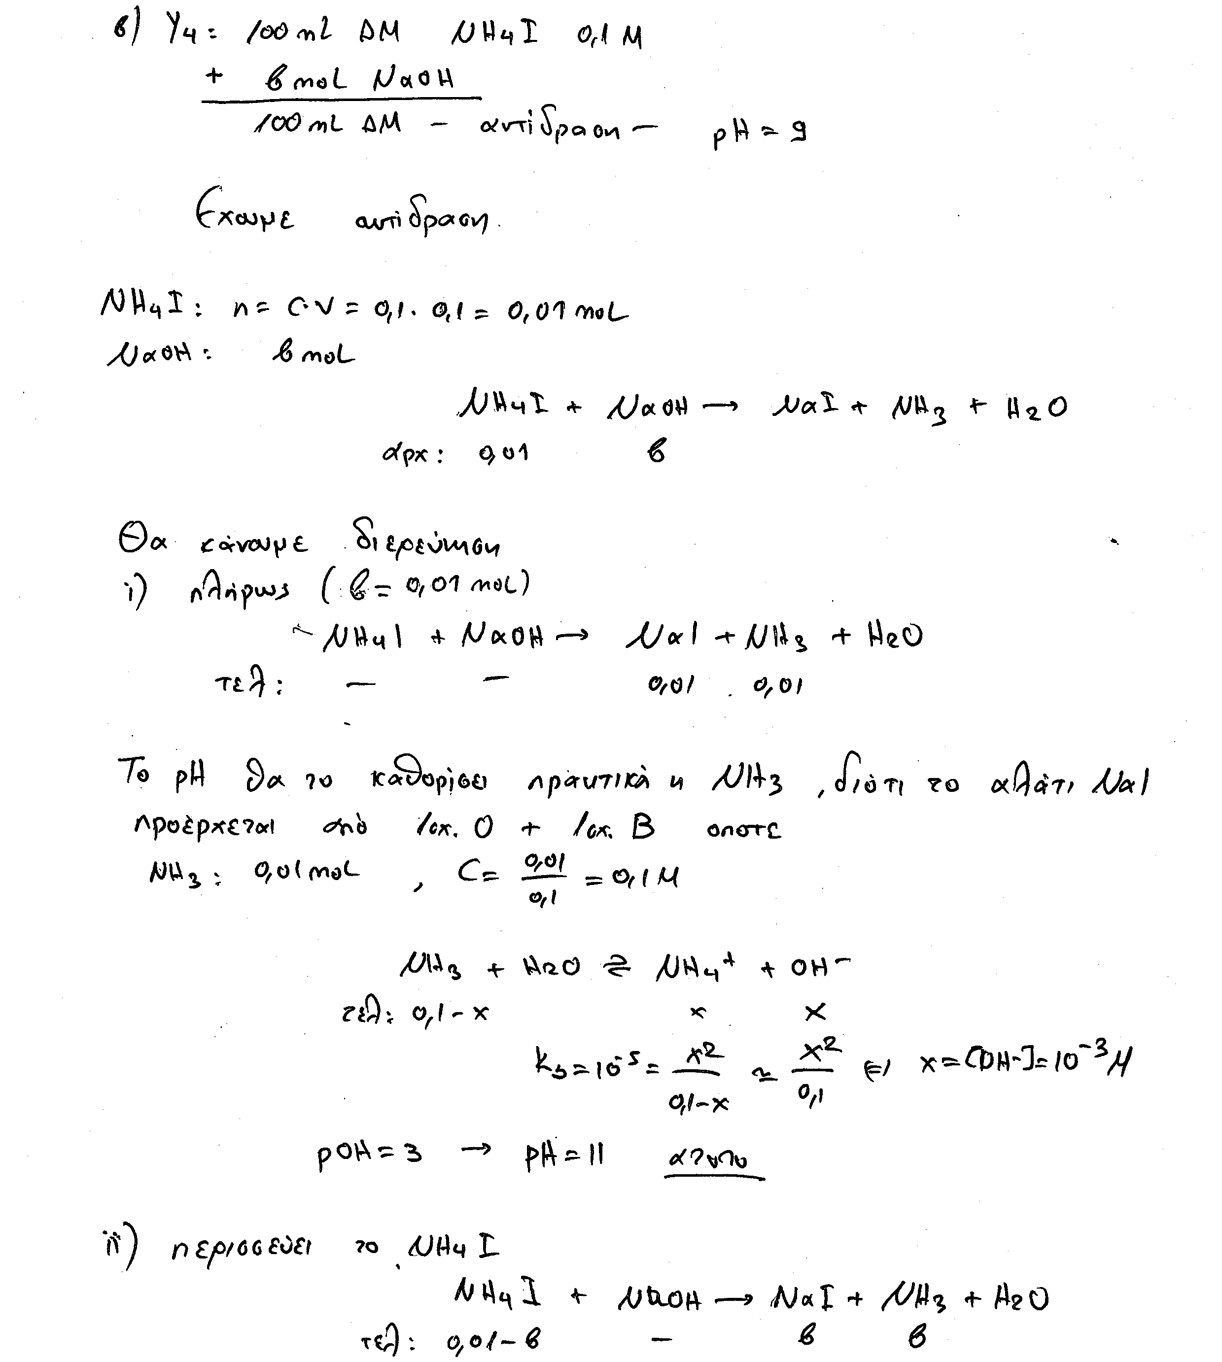 β) Υ4: 100 mL ΔΜ NH4I 0,1 M
+ β mol NaOH
100 mL ΔΜ - αντίδραση - pH = 9
Έχουμε αντίδραση.
NH4I: n = C·V = 0,1 · 0,1 = 0,01 mol
NaOH: β mol
NH4I + NaOH → NaI + NH3 + H2O
αρχ: 0,01 β
Θα κάνουμε διερεύνηση
i) πλήρως (β = 0,01 mol)
NH4I + NaOH → NaI + NH3 + H2O
τελ: — — 0,01 0,01
Το pH θα το καθορίσει πρακτικά η NH3, διότι το αλάτι NaI
προέρχεται από Ισχ. Ο + Ισχ. Β οπότε
NH3: 0,01 mol , C = 0,01/0,1 = 0,1 M
NH3 + H2O ⇌ NH4+ + OH-
τελ: 0,1-x x x
Kb = 10^-5 = x²/(0,1-x) ≃ x²/0,1 ⇔ x = [OH-] = 10^-3 M
pOH = 3 → pH = 11 άτοπο
ii) περισσεύει το NH4I
NH4I + NaOH → NaI + NH3 + H2O
τελ: 0,01-β — β β